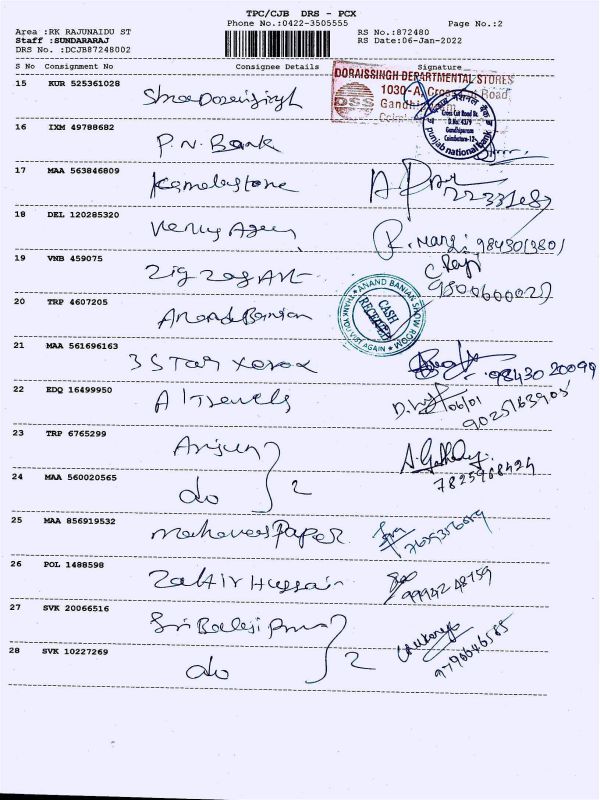 TPC/CJB DRS - PCX
Phone No.:0422-3505555
Page No.:2
Area :RK RAJUNAIDU ST
RS No.:872480
Staff :SUNDARARAJ
RS Date:06-Jan-2022
DRS No. :DCJB87248002
S No Consignment No Consignee Details Signature
DORAISSINGH DEPARTMENTAL STORES
1030-A, Cross Cut Road,
DSS
15 KUR 525361028
Cross Cut Road Br.
D.No: 4379
Gandhipuram
Coimbatore-12
punjab national bank
16 IXM 49788682 P.N. Bank
17 MAA 563846809 Kamalastone
18 DEL 120285320 R. Mani
19 VNB 459075 Zig Zag Art
20 TRP 4607205 Anand Banian
ANAND BANIAN SHOW ROOM
CASH
RECEIVED
THANK YOU VISIT AGAIN
21 MAA 561696163 3 Star Xerox 98430 20099
22 EDQ 16499950 A1 Travels 06/01
9025163905
23 TRP 6765299 Arjun
24 MAA 560020565 do 2
25 MAA 856919532 Mahaveer Paper
26 POL 1488598 Zakir Hussain
27 SVK 20066516 Sri Balaji
28 SVK 10227269 do 2
9790646585